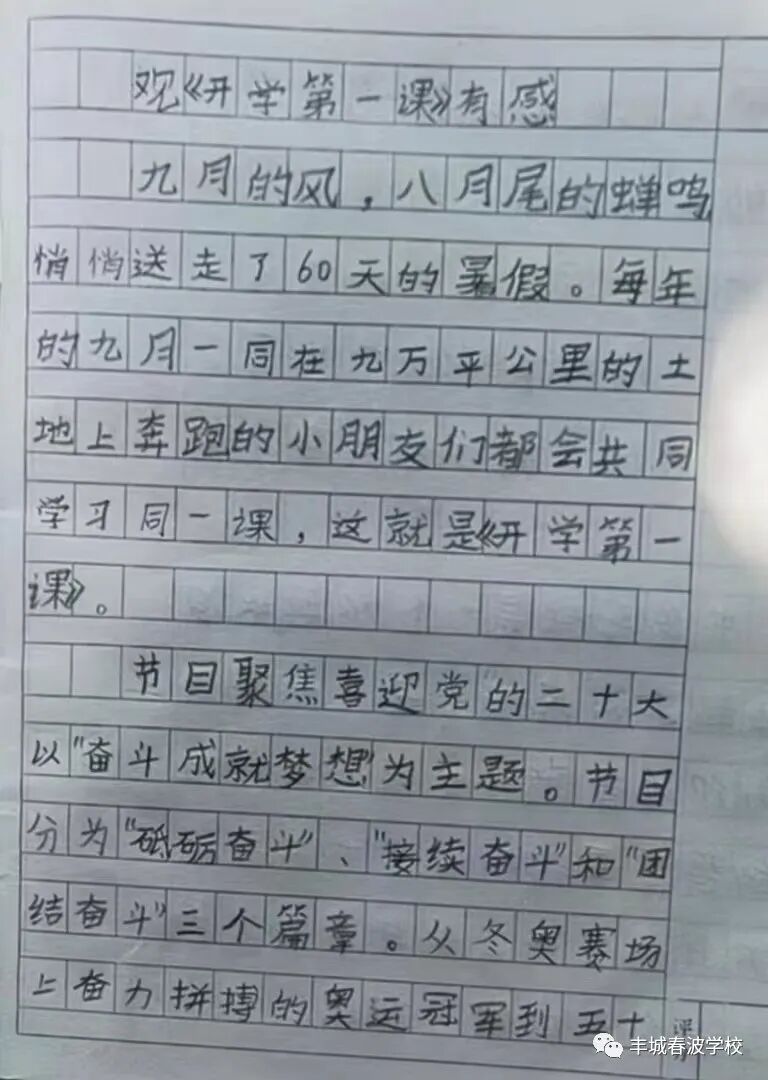 观《开学第一课》有感
九月的风，八月尾的蝉鸣
悄悄送走了60天的暑假。每年
的九月一同在九万平公里的土
地上奔跑的小朋友们都会共同
学习同一课，这就是《开学第一
课》。
节目聚焦喜迎党的二十大
以"奋斗成就梦想"为主题。节目
分为"砥砺奋斗"、"接续奋斗"和"团
结奋斗"三个篇章。从冬奥赛场
上奋力拼搏的奥运冠军到五十
丰城春波学校